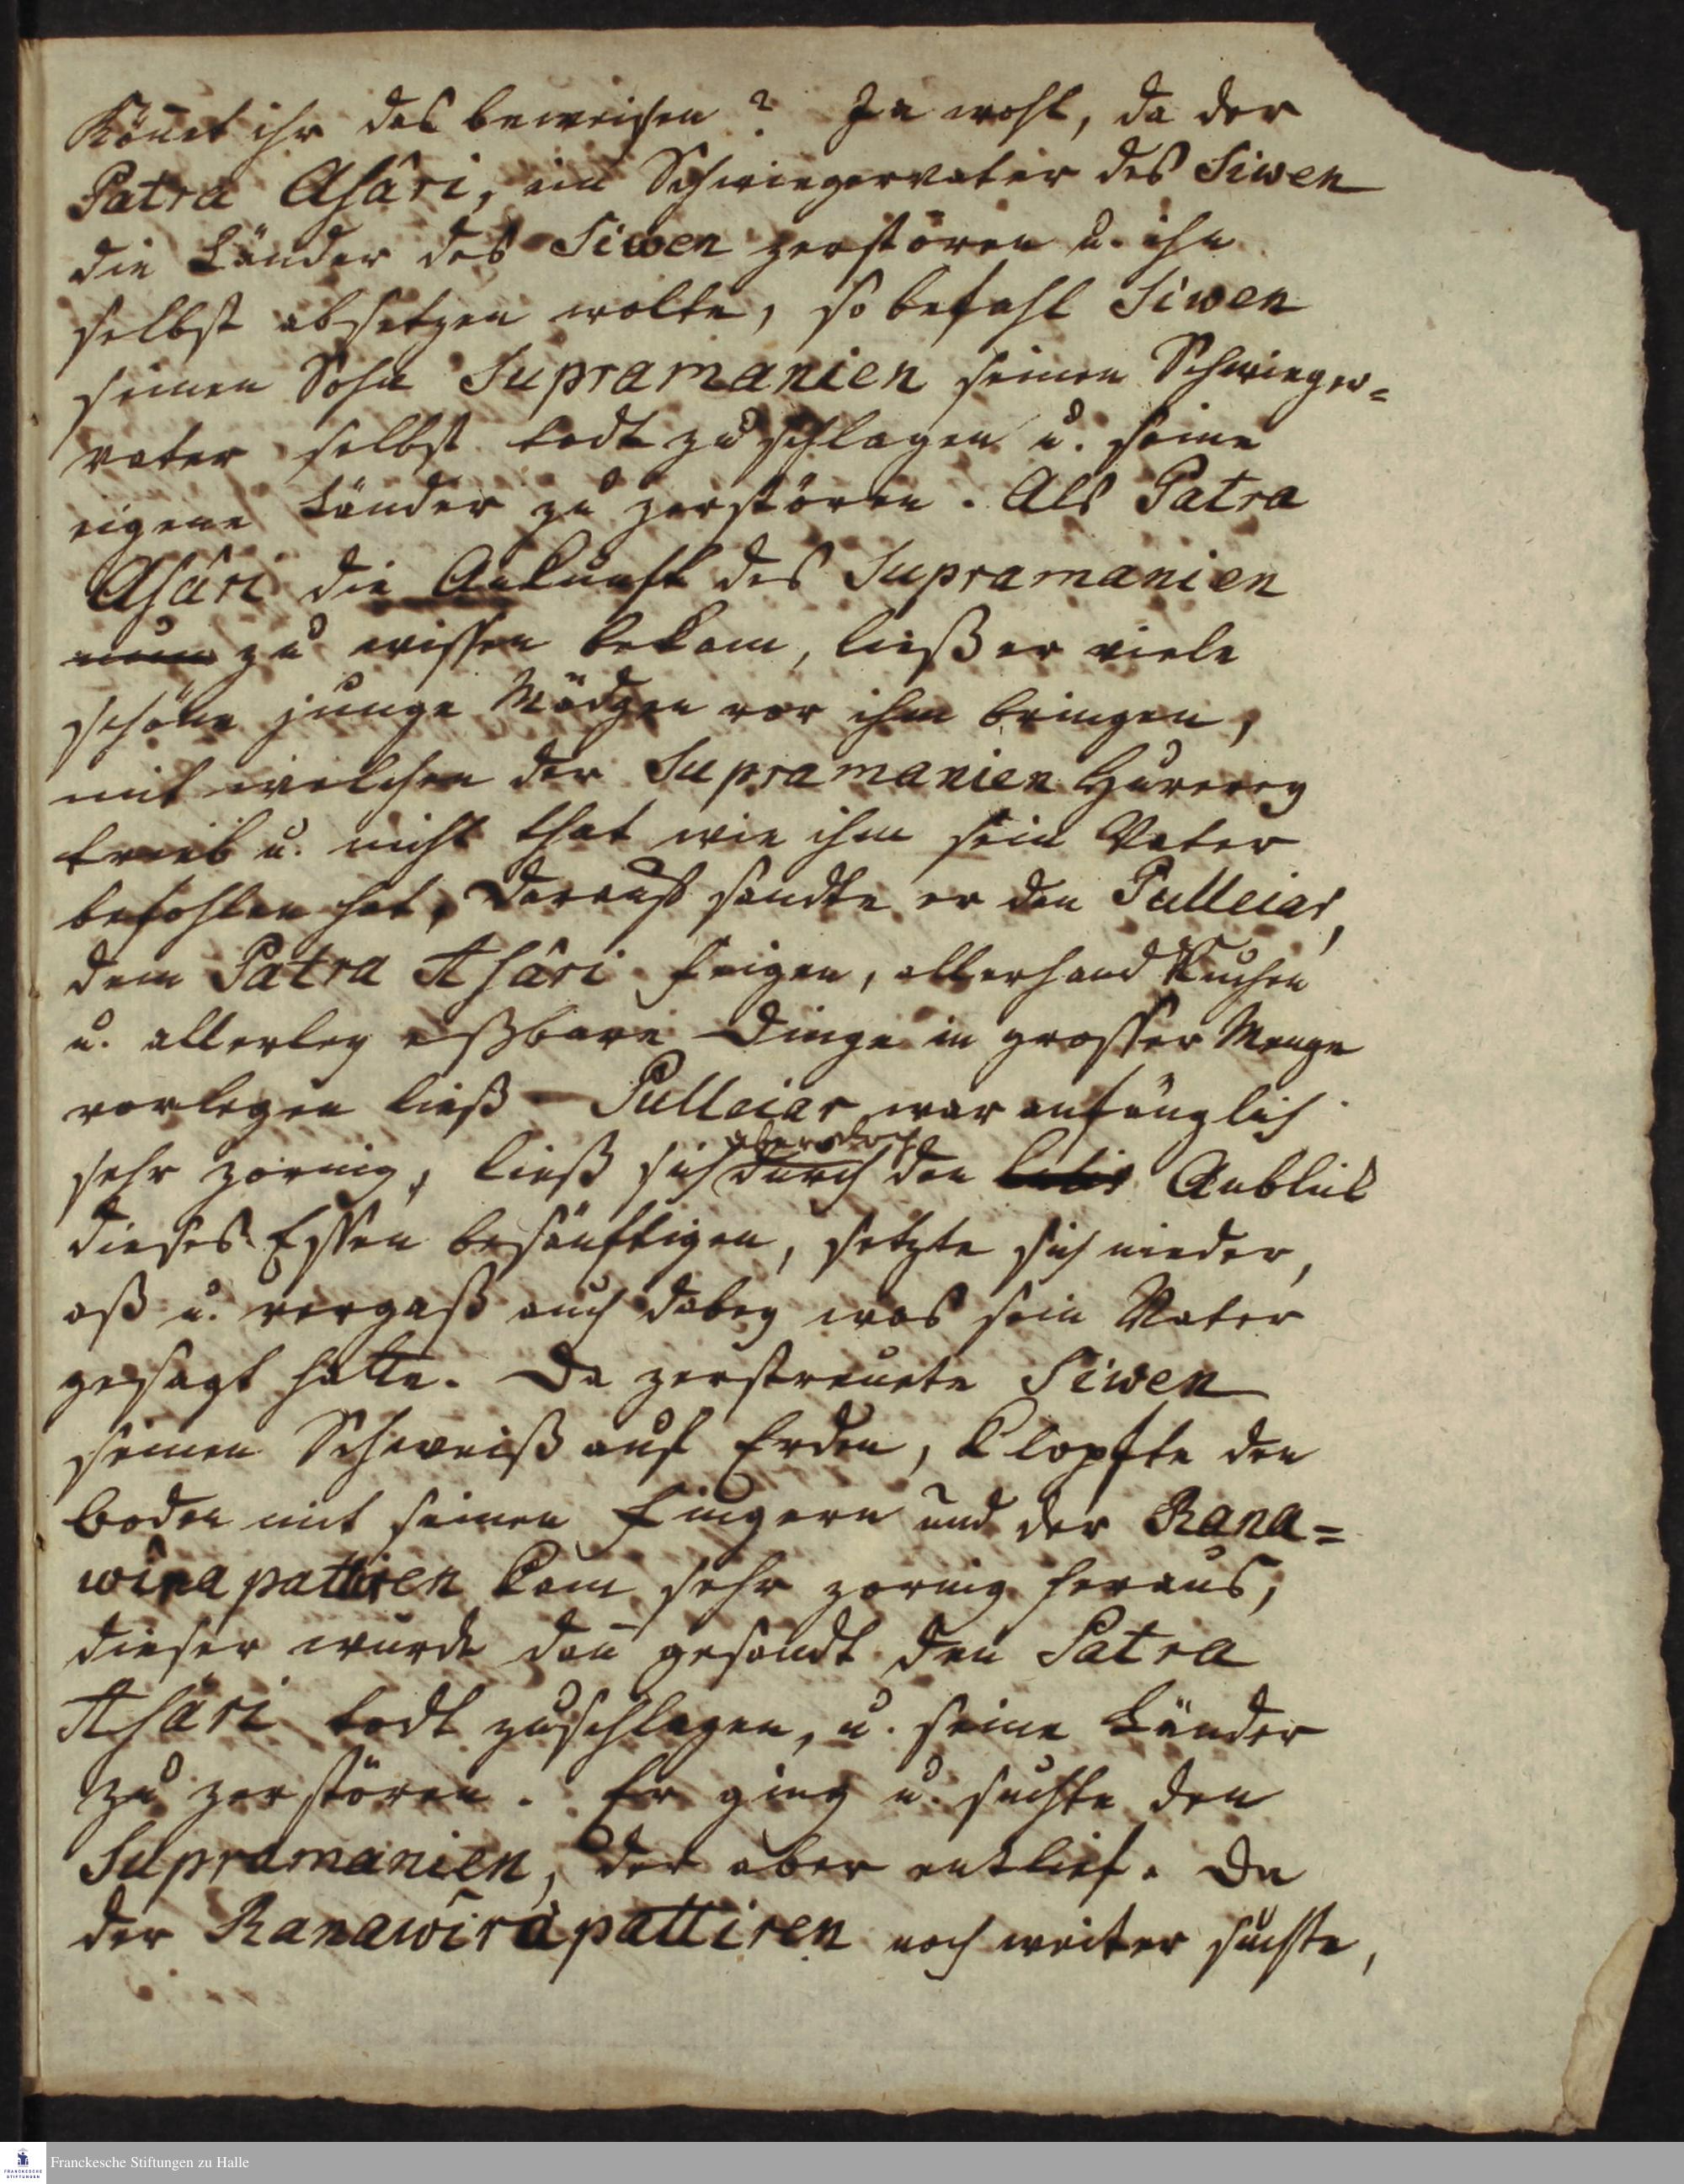 Könet ihr das beweisen? Ja wohl, da der
Patra Asâri, ein Schwiegervater des Siwen
die Länder des Siwen zerstören u. ihn
selbst absetzen wolte, so befahl Siwen
seinen Sohn Supramanien seinen Schwieger=
vater selbst todt zu schlagen u. seine
eigene Länder zu zerstören. Als Patra
Asâri die Ankunft des Supramanien
zu wissen bekam, ließ er viele
schöne junge Mädgen vor ihm bringen,
mit welchen der Supramanien Hurerey
trieb u. nicht that wie ihm sein Vater
befohlen hat, darauf sandte er den Pulleiar,
dem Patra Asâri Feigen, allerhand Kuchen
u. allerley eßbare Dinge in grosser Menge
vorlegen ließ – Pulleiar war anfänglich
sehr zornig, ließ sich aber doch durch den Anblick
dieses Essen besänftigen, setzte sich nieder,
aß u. vergaß auch dabey was sein Vater
gesagt hatte. Da zerstreuete Siwen
seinen Schweiß auf Erden, klopfte den
boden mit seinen Fingern und der Rana=
wîrapattiren kam sehr zornig heraus,
dieser wurde dan̄ gesandt den Patra
Asâri todt zuschlagen, u. seine Länder
zu zerstören. Er ging u. suchte den
Supramanien, der aber entlief. Da
der Ranawîrapattiren noch weiter suchte,
Franckesche Stiftungen zu Halle